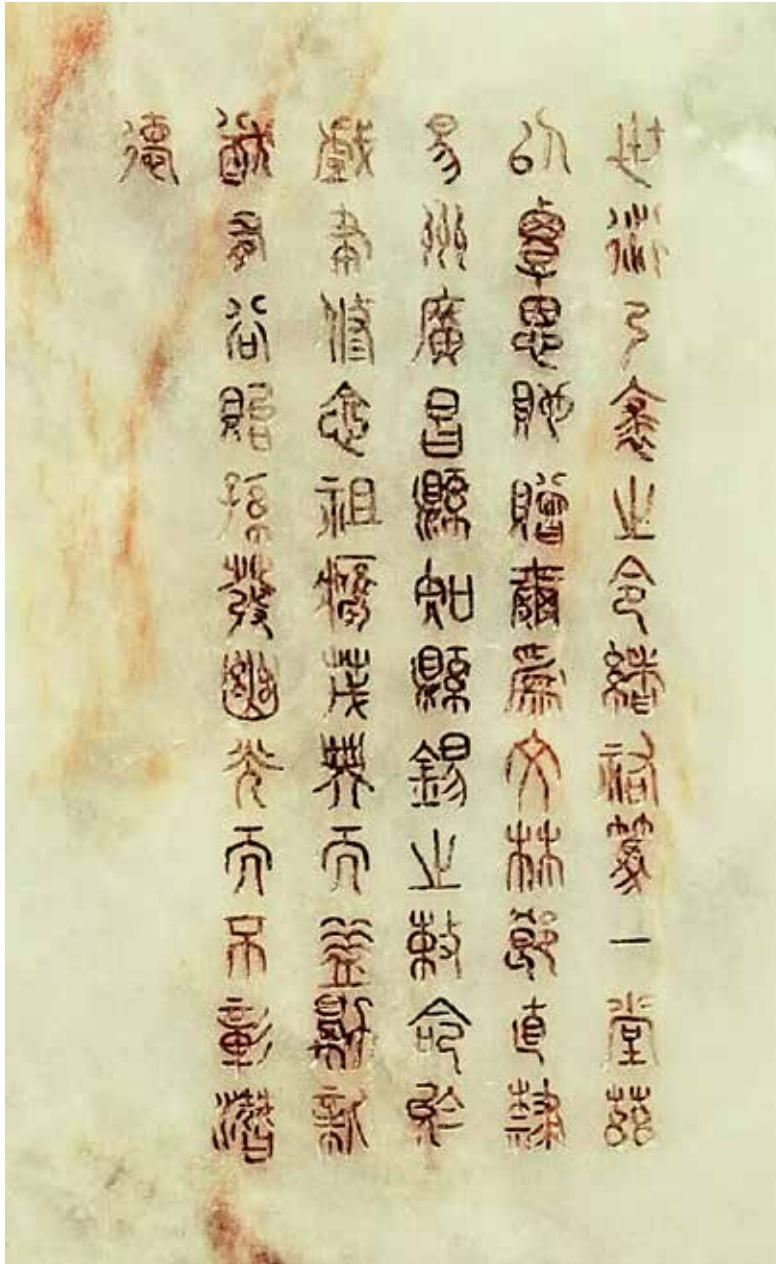 世衍弓裘之令緒祜篤一堂茲
以覃恩貤贈爾為文林郎直隸
易州廣昌縣知縣錫之敕命於
戲聿修念祖膺茂典而益勵新
猷有谷貽孫發幽光而丕彰潛
德